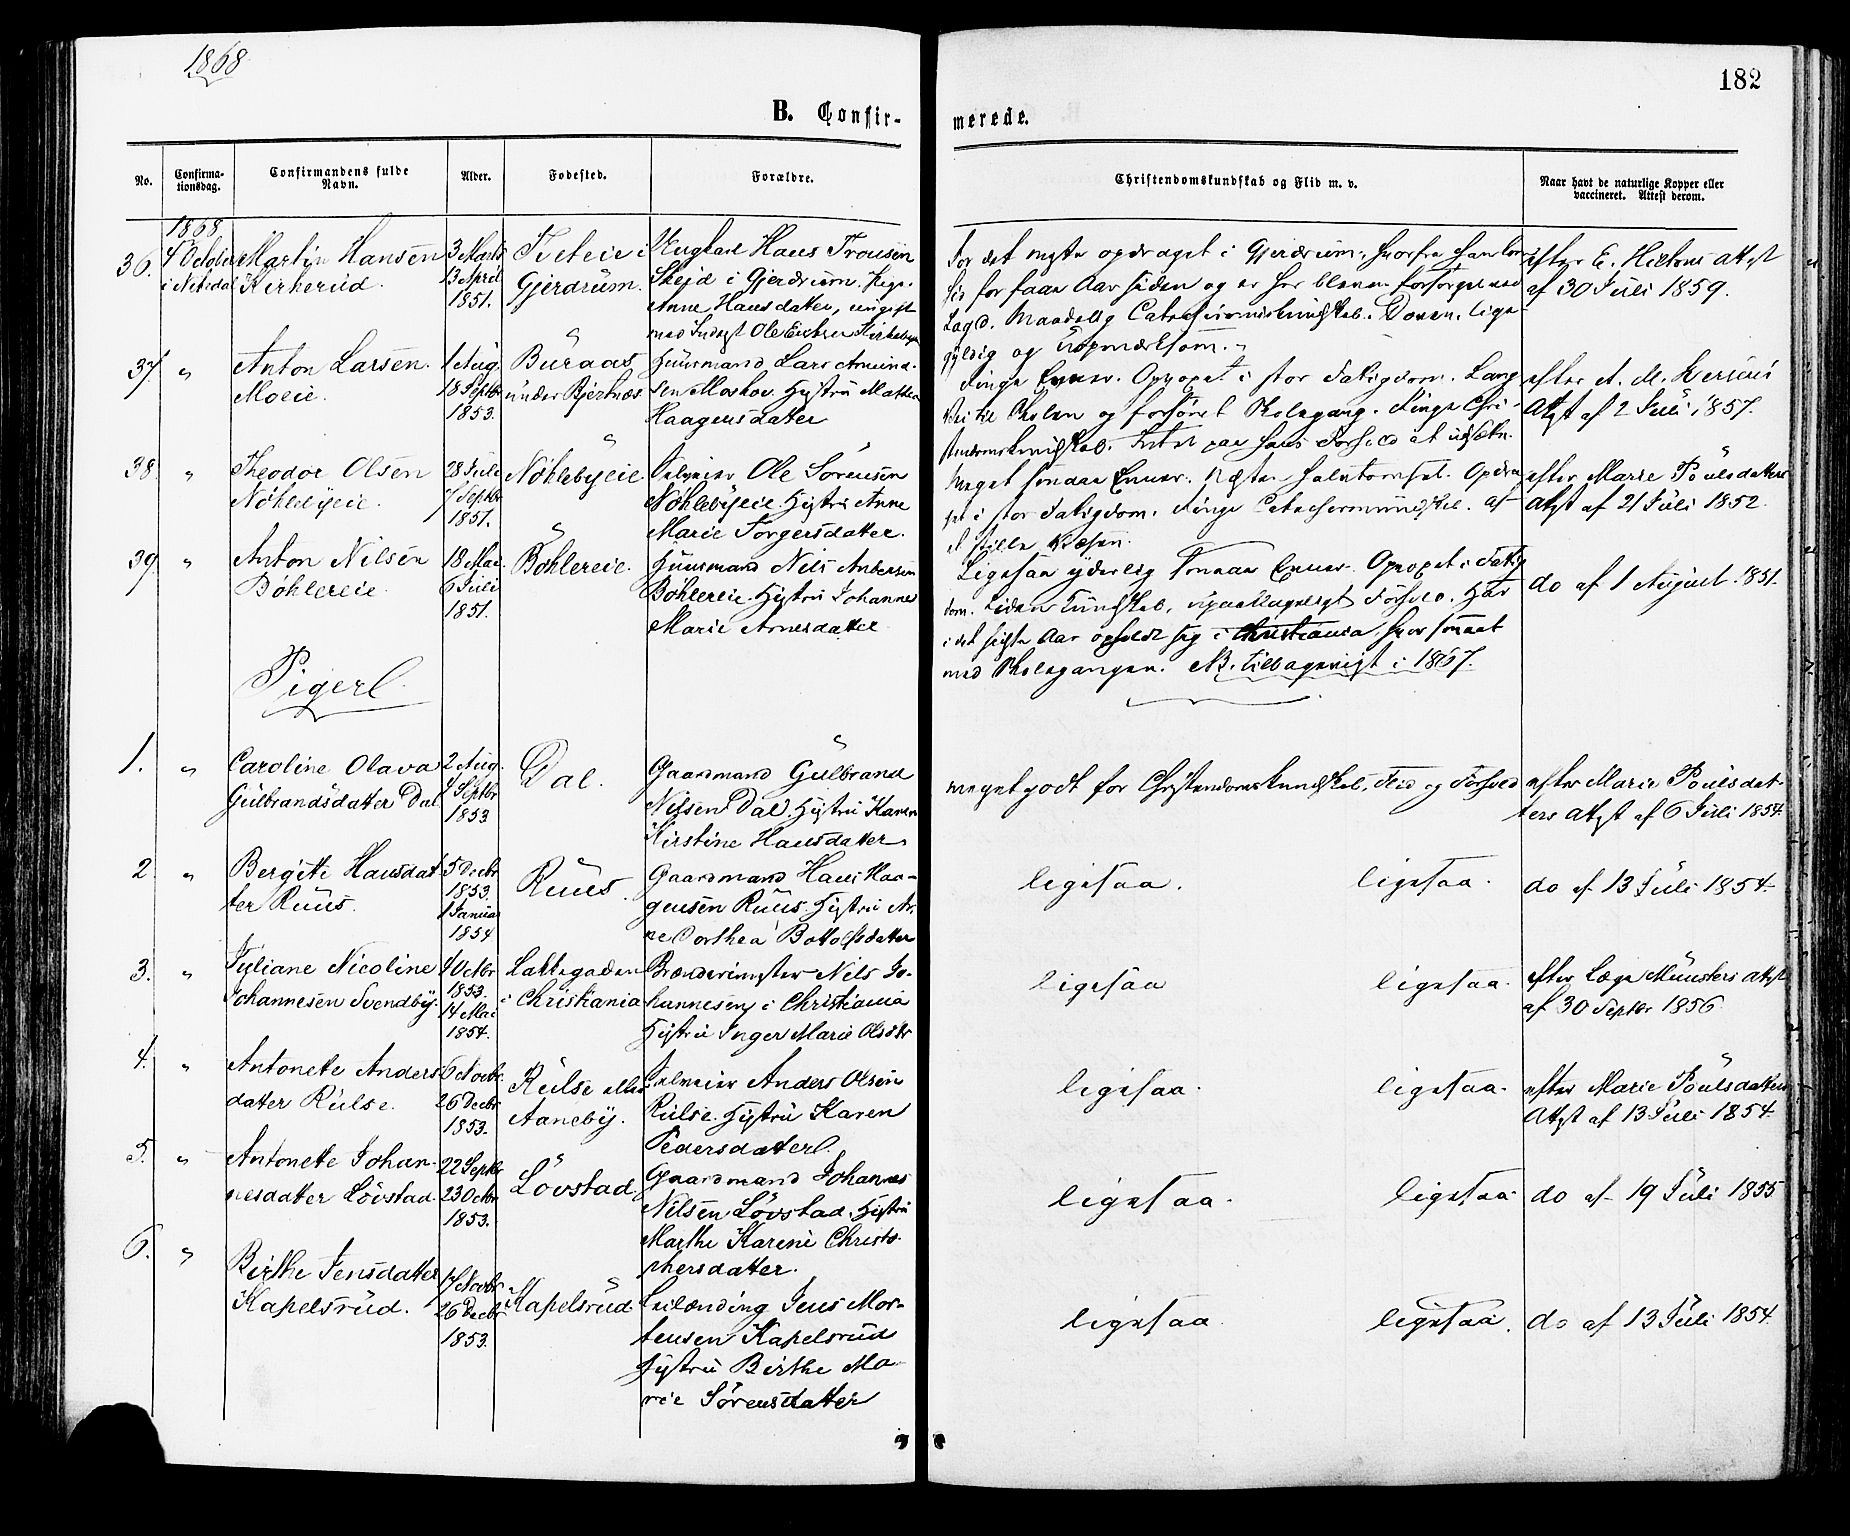 1868
182
B. Confir-
merede.
No.
Confirma-
tionsdag.
Confirmandens fulde
Navn.
Alder.
Fodested.
Forældre.
Christendomskundskab og Flid m. v.
Naar havt de naturlige Kopper eller
vaccineret. Attest derom.
1868.
36. 4 October
i Nitedal
Martin Hansen
Kirkerud.
3 Marts
13 April
1851.
Gjerdrum.
Ungkarl Hans
Skejd i Gjerdrum. Pige
Anne Hansdatter, ungift
For det meste opdraget i Gjerdrum, hvorfra han kom
hid for faae Aar siden og er her bleven forsørget ved
Lægd. Maadelig Catechismuskundskab. Doven, lige-
gyldig og uopmærksom.
efter E. Attest
af 30 Juli 1859.
37. "
Anton Larsen
Moeie.
1 Aug.
18 Septbr
1853.
Buraas
under Bjertnæs.
Huusmand Lars Amund-
sen Hustru Mathea
Haagensdatter
Ringe Evner. Opvoxet i stor Fatigdom. Lang
Vei til Skolen og forsømt Skolegang. Ringe Chri-
stendomskundskab. Intet paa hans Forhold at udsætte.
efter A. M.
Attest af 2 Juli 1857.
38. "
Theodor Olsen
Nøhlebyeie.
28 Juli
7 Septbr
1851.
Nøhlebyeie.
Ole Sörensen
Nøhlebyeie. Hustru Anne
Marie Torgersdatter.
Meget smaae Evner. Næsten halvtomset. Opdra-
get i stor Fatigdom. Ringe. af
et stille Væsen.
efter Marie Poulsdatters
Attest af 21 Juli 1852.
39. "
Anton Nilsen
Böhlereie.
18 Mai
6 Juli
1851.
Böhlereie.
Huusmand Nils Andersen
Böhlereie. Hustru Johanne
Marie Arnesdatter
Ligesaa yderlig smaae Evner. Opvoxet i Fatig-
dom. Liden Kundskab, upaaklageligt Forhold. Har
i det sidste Aar opholdt sig i Christiania hvor smaat
med Skolegangen. NB. tilbagevist i 1867.
do af 1 August 1851.
Piger.
1. "
Caroline Olava
Gulbrandsdatter Dal
2 Aug.
4 Septbr
1853
Dal.
Gaardmand Gulbrand
Nilsen Dal. Hustru Karen
Kirstine Hansdatter
meget godt for Christendomskundskab, Flid og Forhold
efter Marie Poulsdat-
ters Attest af 6 Juli 1854.
2. "
Bergitte Hansdat-
ter Ruus.
5 Decbr
1853.
1 Januar
1854
Ruus.
Gaardmand Hans Haa-
gensen Ruus. Hustru An-
ne Dorthea Bottolfsdatter
ligesaa.
ligesaa.
do af 13 Juli 1854.
3. "
Juliane Nicoline
Johannesen Svendby.
4 Octbr
1853.
14 Mai
1854.
Lakkegaden
i Christiania
Brænderimester Nils Jo-
hannesen i Christiania
Hustru Inger Marie Olsdtr
ligesaa
ligesaa.
efter Læge Münsters Attest
af 30 Septbr 1856.
4. "
Antonette Anders-
datter Rulse.
6 Novbr.
26 Decbr
1853.
Rulse eller
Aaneby.
Anders Olsen
Rulse. Hustru Karen
Pedersdatter.
ligesaa.
ligesaa.
efter Marie Poulsdatters
Attest af 13 Juli 1854.
5. "
Antonette Johan-
nesdatter Lövstad.
22 Septbr
23 Octbr
1853.
Lövstad
Gaardmand Johannes
Nilsen Lövstad. Hustru
Marthe Karine Christo-
phersdatter.
ligesaa.
ligesaa.
do af 19 Juli 1855
6. "
Birthe Jensdatter
Kapelsrud.
17 Novbr
26 Decbr
1853.
Kapelsrud.
Leilænding Jens Mor-
tensen Kapelsrud
Hustru Birthe Ma-
rie Sörensdatter
ligesaa.
ligesaa.
do af 13 Juli 1854.